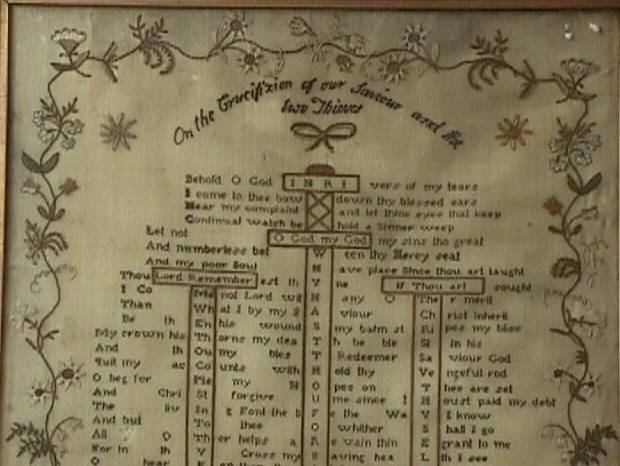 On the Crucifixion of our Saviour and
two Thieves
Behold O God I N R I vers of my tears
I come to thee bow down thy blessed ears
Hear my complaint and let thine eyes that keep
Continual watch be hold a Sinner weep
Let not O God my God my sins tho great
And numberless bet W een thy Mercy seat
And my poor Soul H ave place Since thou art taught
Thou Lord Remember est th Y ne If Thou art sought
I Co Me not Lord wit H any O The r merit
Than Wh at I by my S A viour Ch rist inherit
Be th En his wound S my balm st Ri pes my bliss
My crown his Th orns my dea T h be ble St in his
And th Ou my bles T Redeemer Sa viour God
Quit my ac Co unts with H old thy Ve ngeful rod
O beg for Me my H O pes on T hee are set
And Chri St forgive U me since I H oust paid my debt
The liv In g Font the F e the Wa Y I know
And but To thee O whither S hall I go
All O Th er helps a R e vain thin E grant to me
For in th Y Cross my S aving hea L th I see
O hear